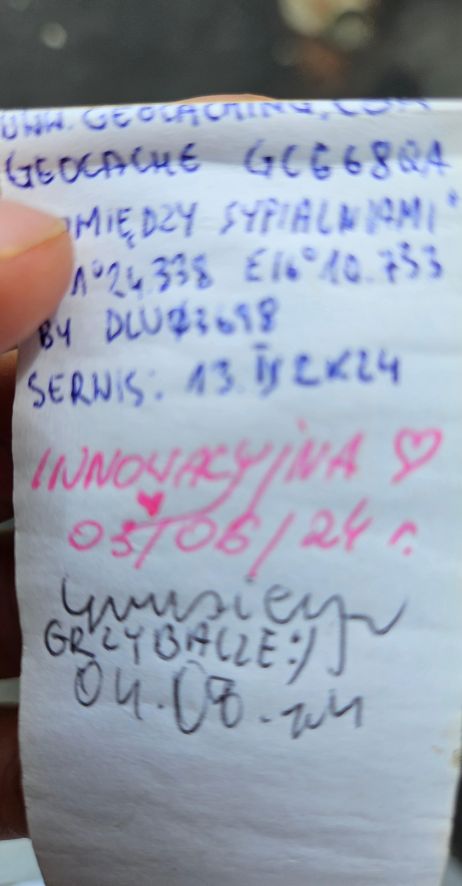 WWW.GEOCACHING.COM
GEOCACHE GC668QA
MIĘDZY SYPIALNIAMI"
1°24.338 E16°10.733
BY DLUŻ3698
SERWIS: 13.IV 2K24
INNOWACYJNA ♡
03/06/24 r.
GRZYBIARZE:)
04.08.24